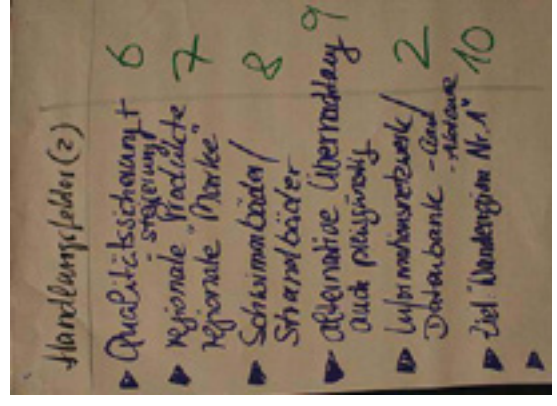 Handlungsfelder (2)
▶ Qualitätssicherung + 6
steigerung
▶ regionale Produkte 7
regionale "Marke"
▶ Schwimmbäder/ 8
Strandbäder
▶ alternative Übernachtung 9
auch preisgünstig
▶ Informationsnetzwerk/ 2
Datenbank
▶ Ziel: "Wanderregion Nr. 1" 10
▶